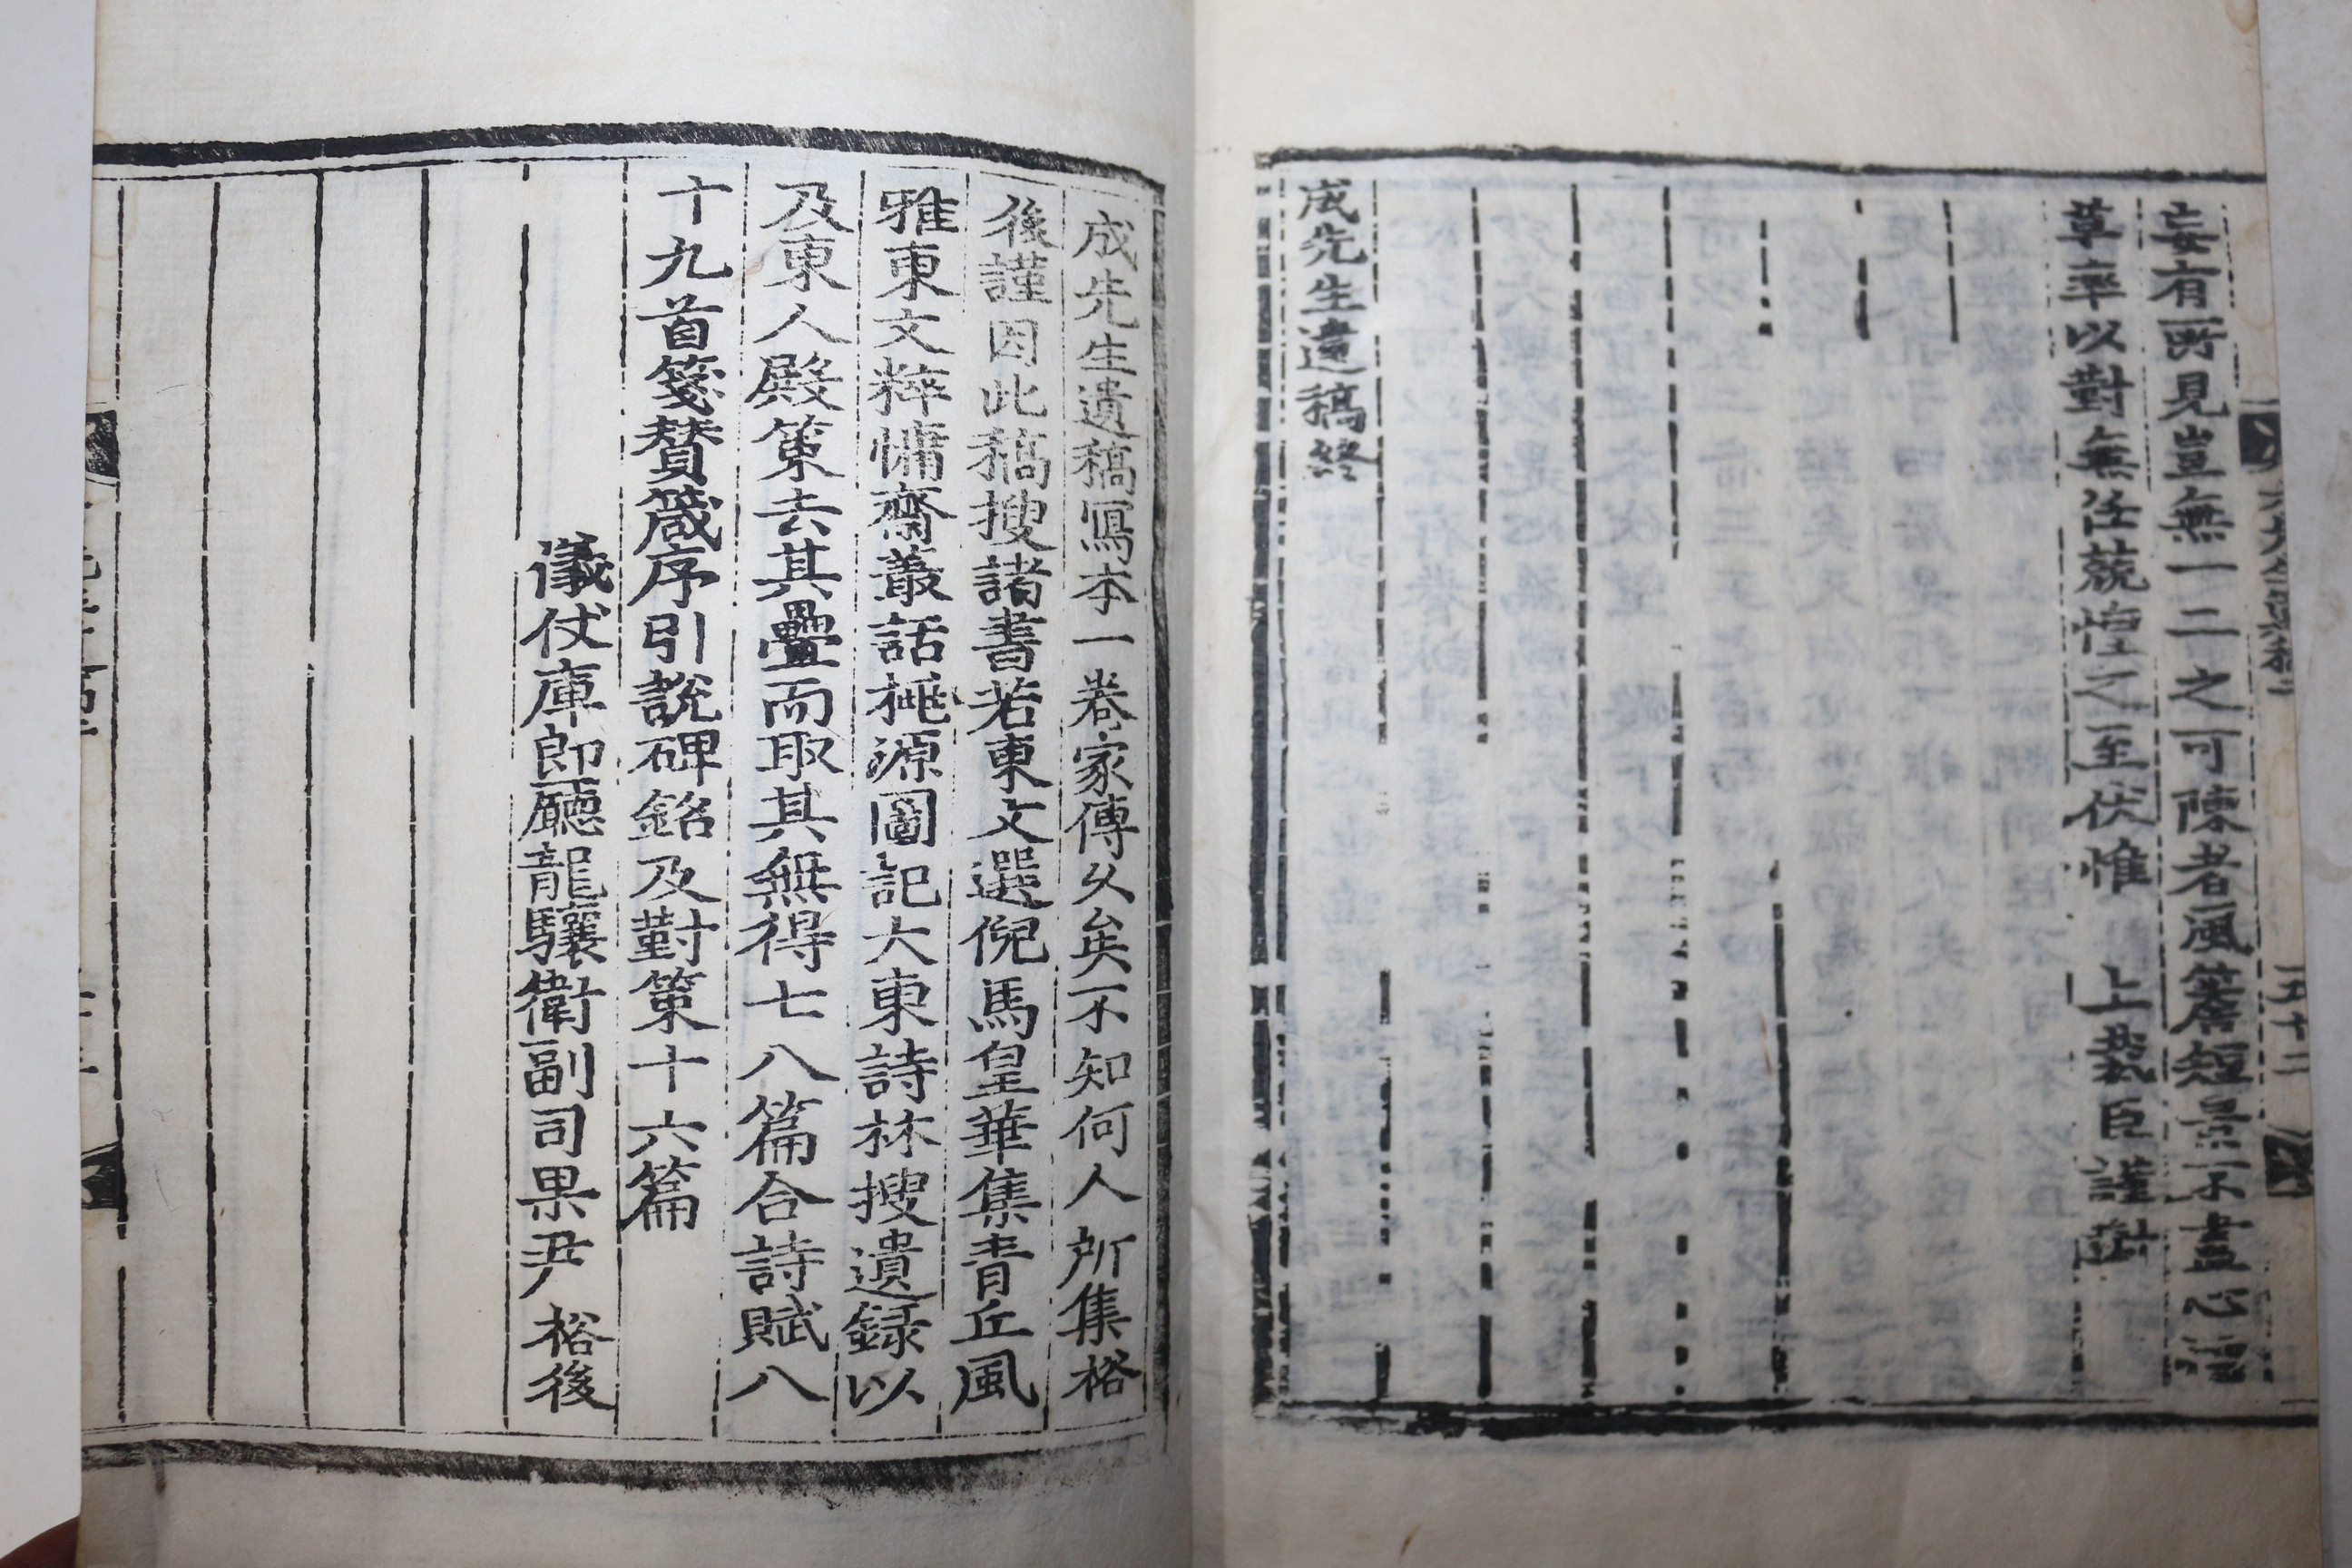 妄有所見豈無一二之可陳者風簷短景不盡心
草率以對無任兢惶之至伏惟 上裁臣謹對
成先生遺稿終
成先生遺稿寫本一卷家傳久矣不知何人所集格
後謹因此稿搜諸書若東文選倪馬皇華集青丘風
雅東文粹慵齋叢話桃源圖記大東詩林搜遺録以
及東人殿策去其疊而取其無得七八篇合詩賦八
十九首箋贊箴序引說碑銘及對策十六篇
儀仗庫郎廳龍驤衛副司果尹格後
五十二